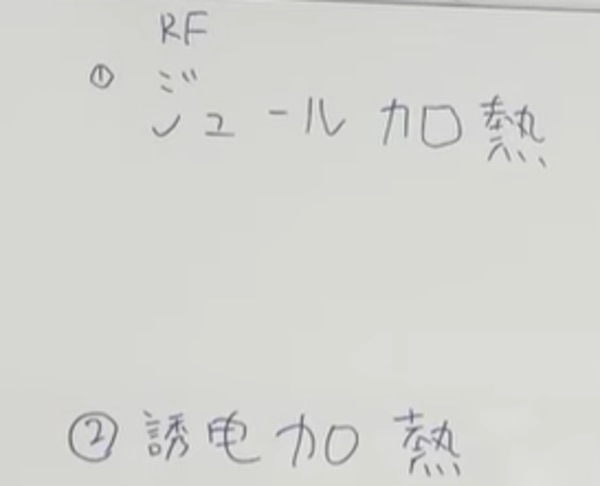 RF
① ジュール加熱
② 誘电加熱